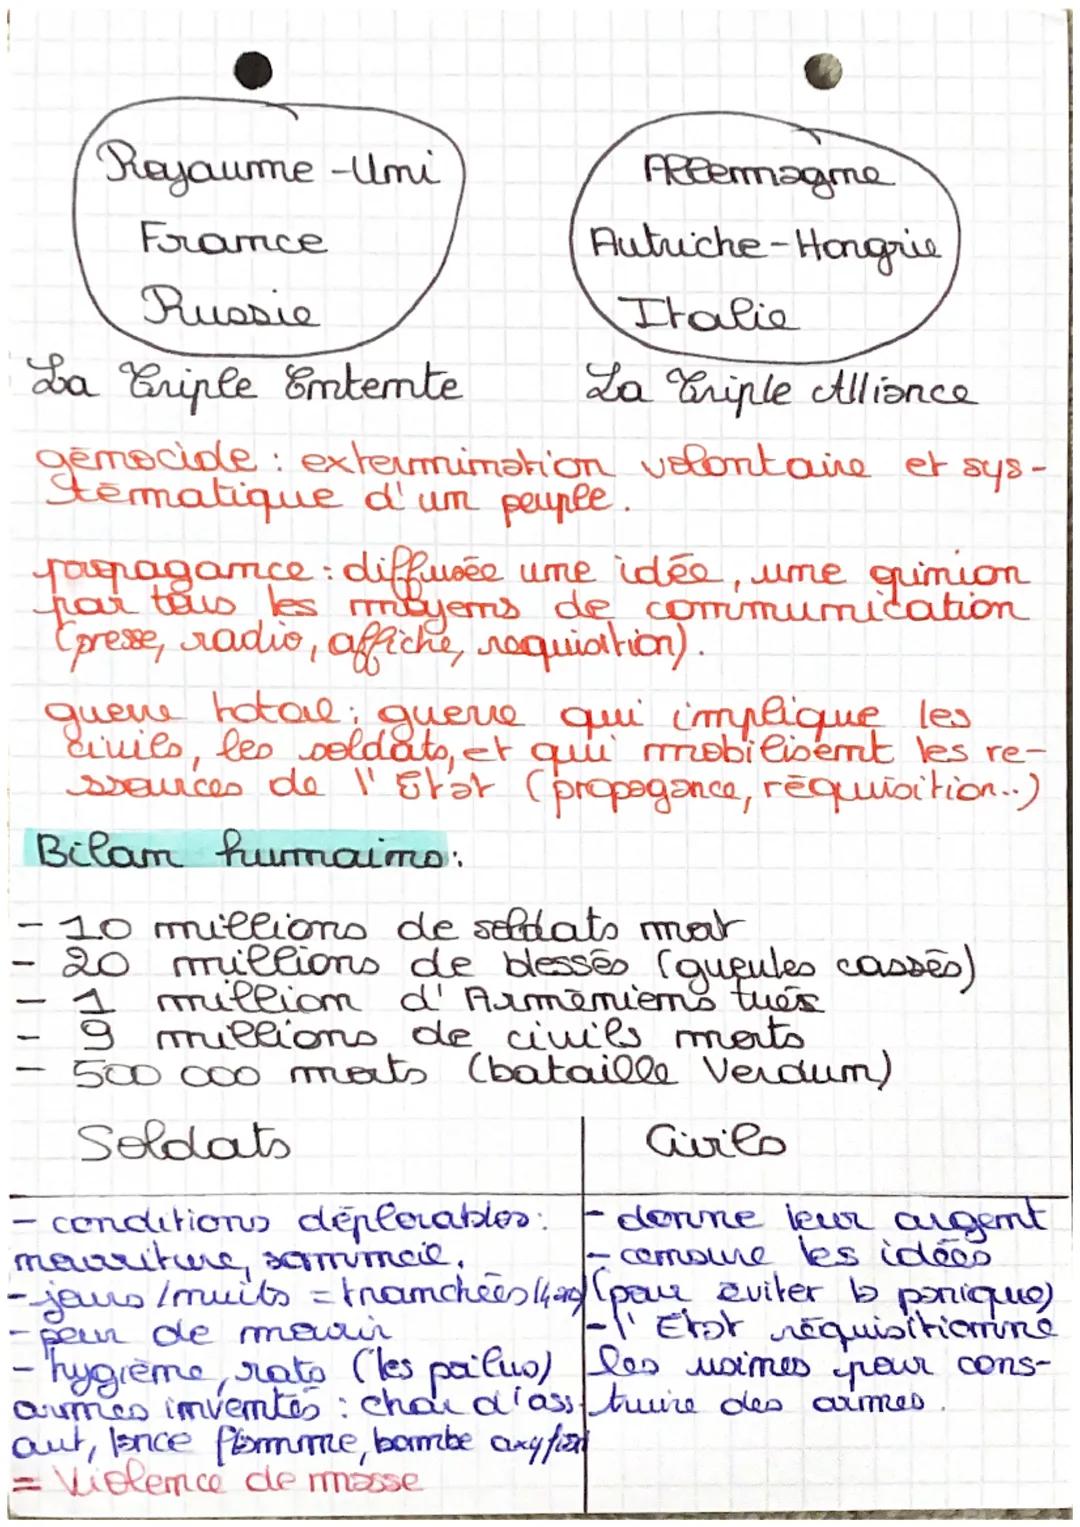 Royaume-Uni
France
Russie
La Triple Entente
Allemagne
Autriche-Hongrie
Italie
La Triple Alliance
génocide : extermination volontaire et sys-
tématique d'un peuple.
propagance : diffusée une idée, une opinion
par tous les moyens de communication
(presse, radio, affiche, requisition).
guerre total : guerre qui implique les
civils, les soldats, et qui mobilisent les re-
ssources de l'Etat (propogance, réquisition..)
Bilan humains :
- 10 millions de soldats mort
- 20 millions de blessés (gueules cassés)
- 1 million d'Arméniens tués
- 9 millions de civils morts
- 500 000 morts (bataille Verdun)
Soldats
- conditions déplorables :
nourriture, sommeil.
- jours / nuits = tranchées
- peur de mourir
- hygiène, rats (les poilus)
armes inventés : char d'ass-
aut, lance flamme, bombe
= Violence de masse
Civils
- donne leur argent
- censure les idées
(pour éviter la panique)
- l'Etat réquisitionne
les usines pour cons-
truire des armes.